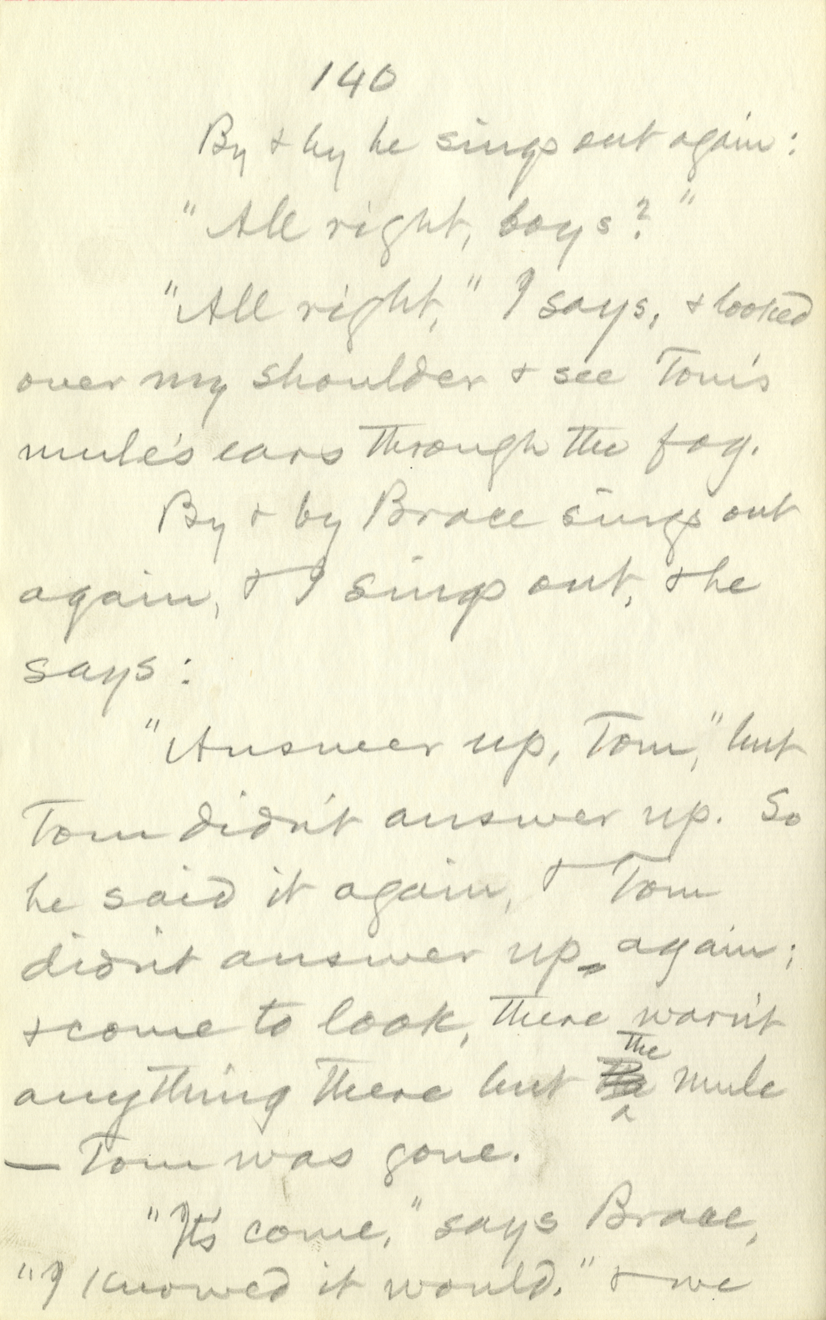 140
By & by he sings out again:
"All right, boys?"
"All right," I says, & looked
over my shoulder & see Tom's
mule's ears through the fog.
By & by Brace sings out
again, & I sings out, & he
says:
"Answer up, Tom," but
Tom didn't answer up. So
he said it again, & Tom
didn't answer up, again;
& come to look, there warn't
the
anything there but mule
— Tom was gone.
"It's come," says Brace,
"I knowed it would." & we